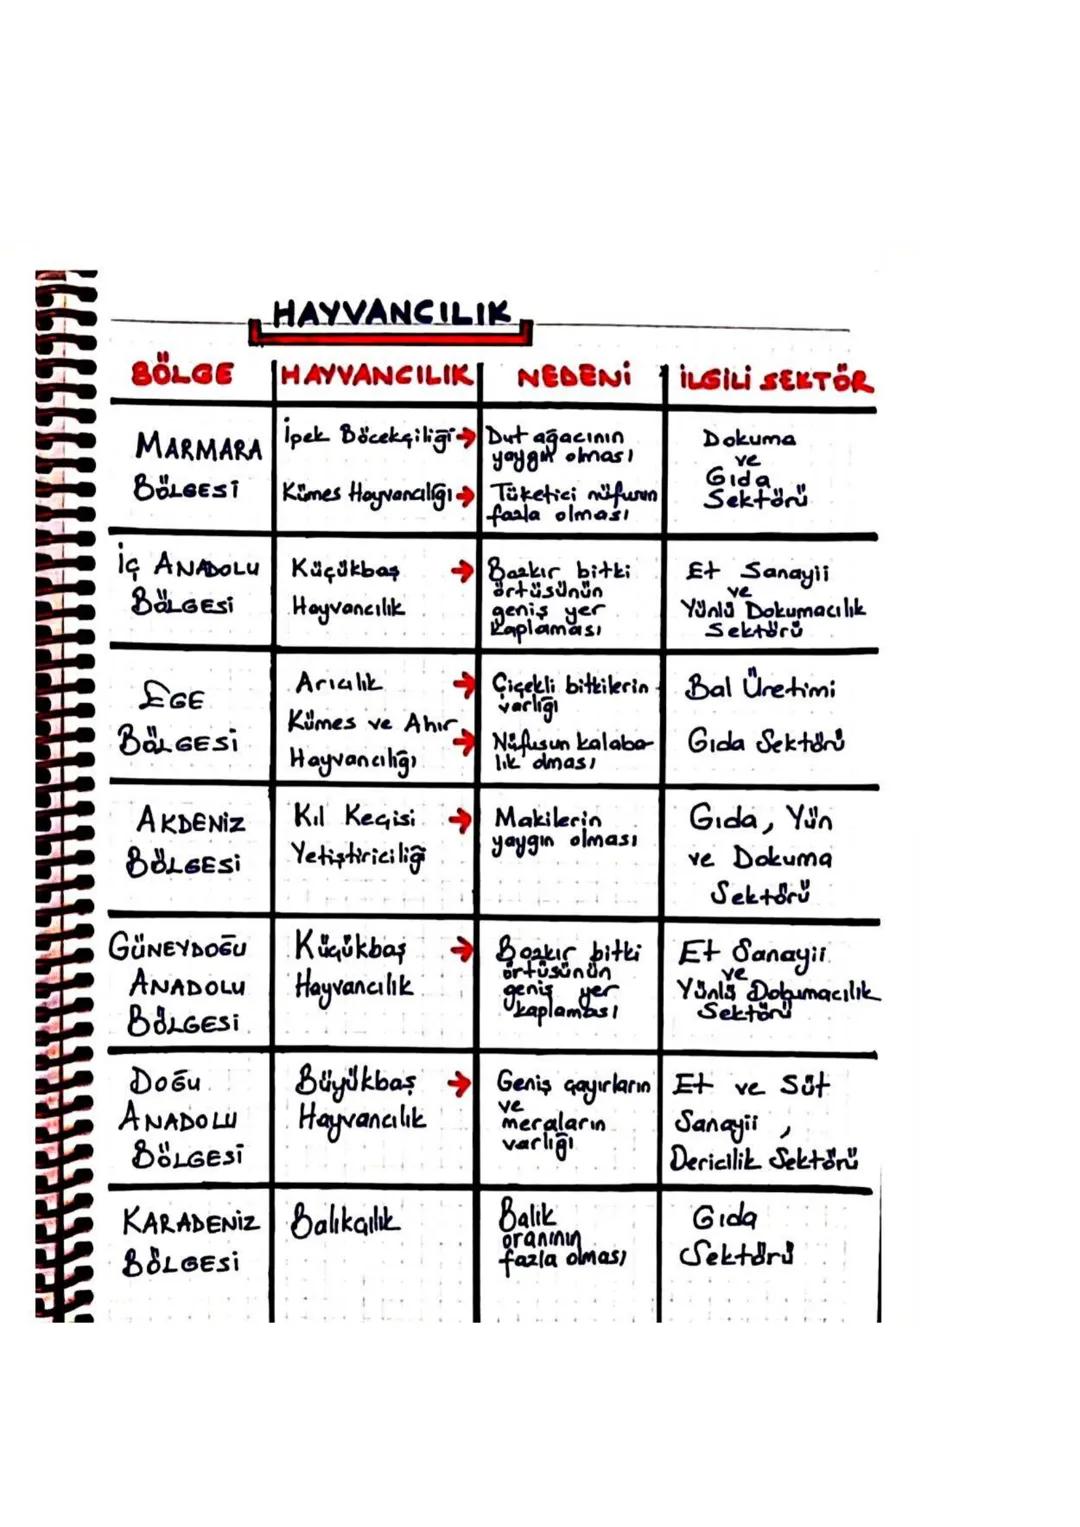 HAYVANCILIK
BÖLGE HAYVANCILIK NEDENİ İLGİLİ SEKTÖR
MARMARA
BÖLGESİ
İpek Böcekçiliği →
Kümes Hayvancılığı →
Dut ağacının
yaygın olması
Tüketici nüfusun
fazla olması
Dokuma
ve
Gıda
Sektörü
İÇ ANADOLU
BÖLGESİ
Küçükbaş →
Hayvancılık
Bozkır bitki
örtüsünün
geniş yer
kaplaması
Et Sanayii
ve
Yünlü Dokumacılık
Sektörü
EGE
BÖLGESİ
Arıcılık →
Kümes ve Ahır →
Hayvancılığı
Çiçekli bitkilerin
varlığı
Nüfusun kalaba-
lık olması
Bal Üretimi
Gıda Sektörü
AKDENİZ
BÖLGESİ
Kıl Keçisi →
Yetiştiriciliği
Makilerin
yaygın olması
Gıda, Yün
ve Dokuma
Sektörü
GÜNEYDOĞU
ANADOLU
BÖLGESİ
Küçükbaş →
Hayvancılık
Bozkır bitki
örtüsünün
geniş yer
kaplaması
Et Sanayii
ve
Yünlü Dokumacılık
Sektörü
DOĞU
ANADOLU
BÖLGESİ
Büyükbaş →
Hayvancılık
Geniş çayırların
ve
meraların
varlığı
Et ve Süt
Sanayii,
Dericilik Sektörü
KARADENİZ
BÖLGESİ
Balıkçılık
Balık
oranının
fazla olması
Gıda
Sektörü